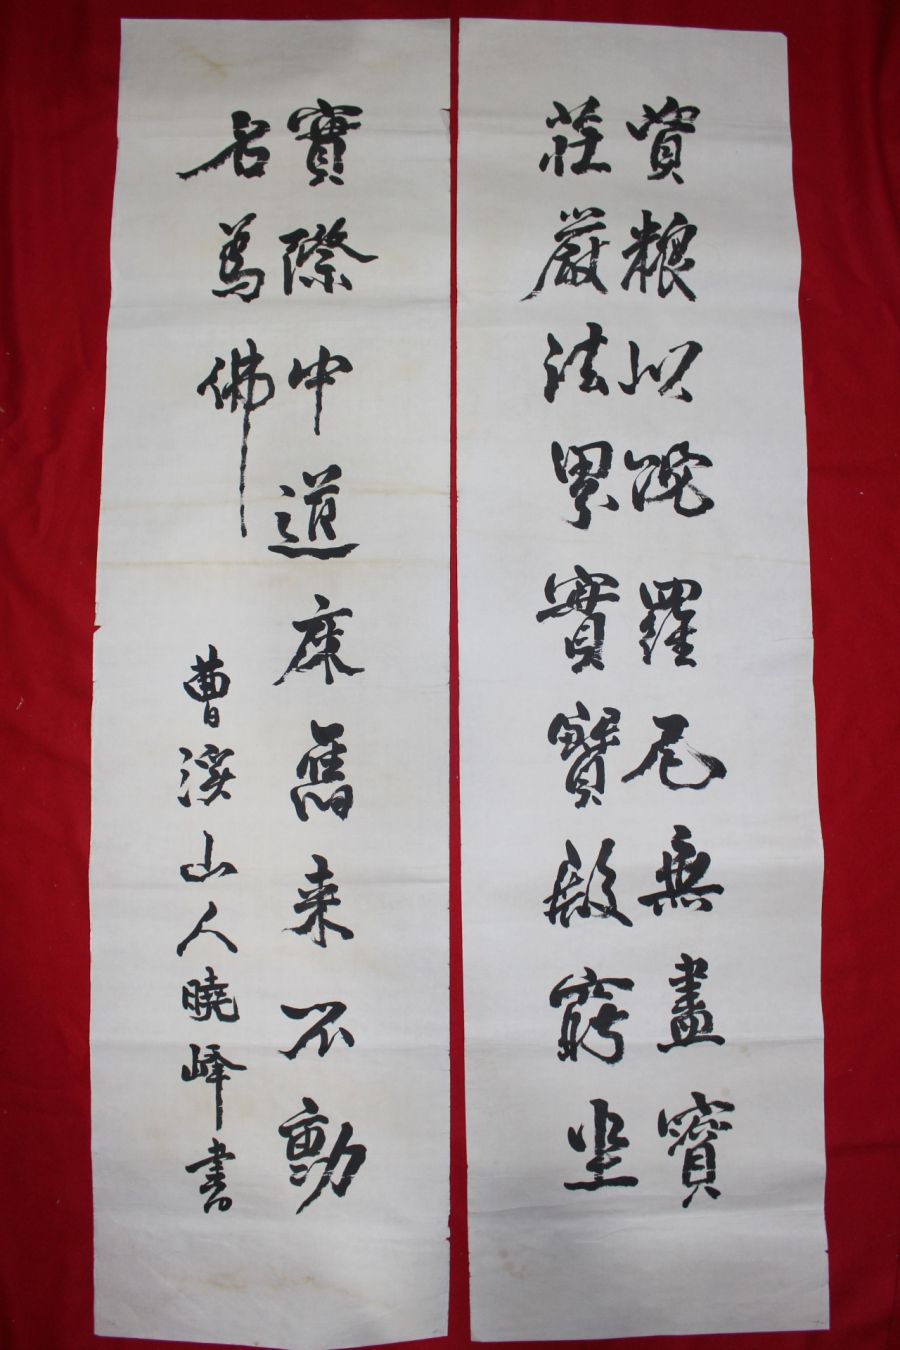 資粮以陀羅尼無盡寶
莊嚴法界實寶殿窮坐
實際中道床舊来不動
名為佛
曹溪山人曉峰書